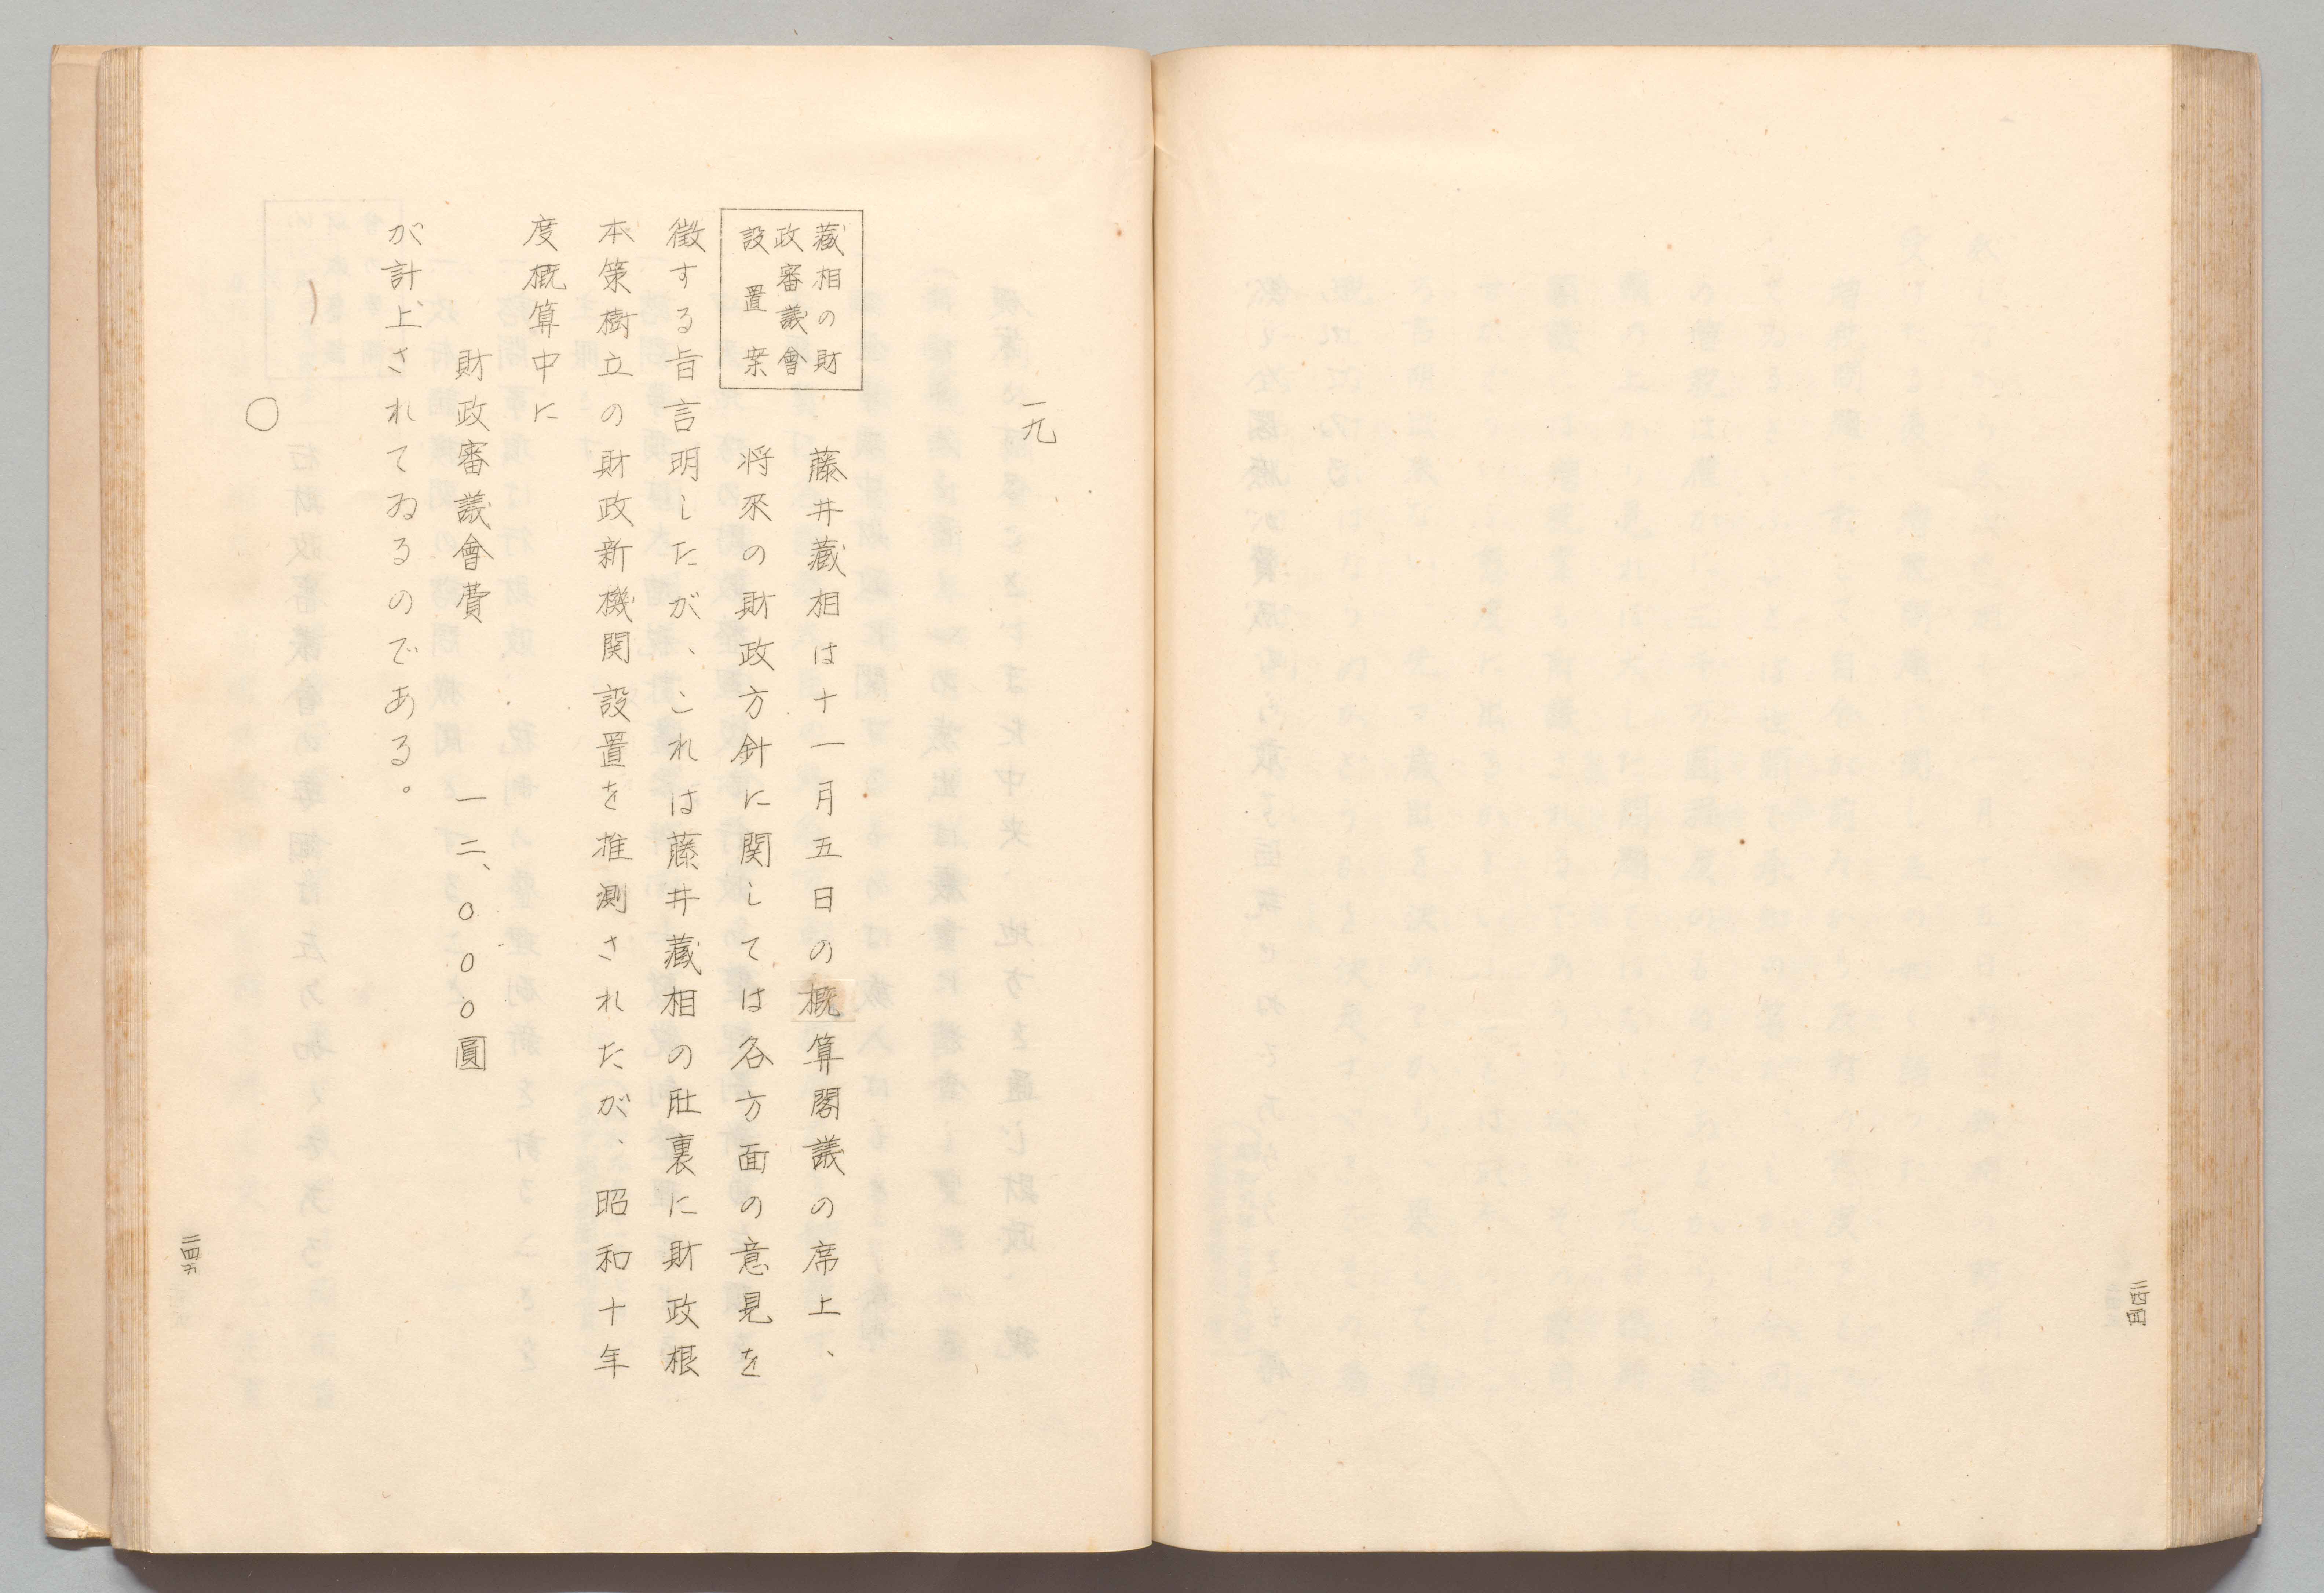 二四四
一九
藏相の財
政審議會
設置案
藤井藏相は十一月五日の概算閣議の席上、
将來の財政方針に関しては各方面の意見を
徴する旨言明したが、これは藤井藏相の肚裏に財政根
本策樹立の財政新機関設置を推測されたが、昭和十年
度概算中に
財政審議會費　一二、〇〇〇圓
が計上されてゐるのである。
〇
二四五